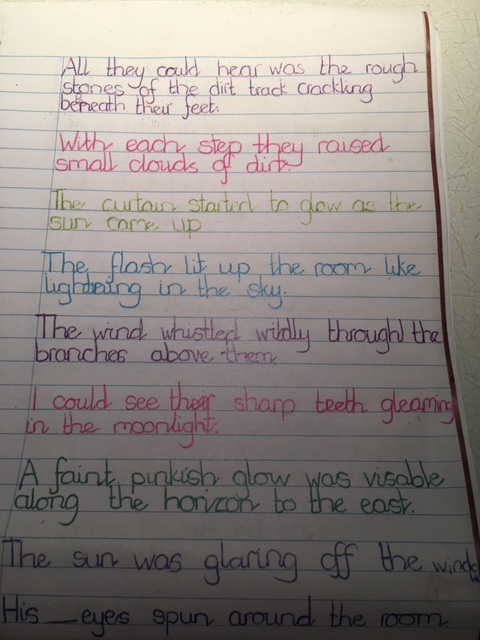 All they could hear was the rough
stones of the dirt track crackling
beneath their feet.
With each step they raised
small clouds of dirt.
The curtain started to glow as the
sun came up
The flash lit up the room like
lightning in the sky.
The wind whistled wildly through the
branches above them
I could see their sharp teeth gleaming
in the moonlight.
A faint, pinkish glow was visable
along the horizon to the east.
The sun was glaring off the
His __ eyes spun around the room.